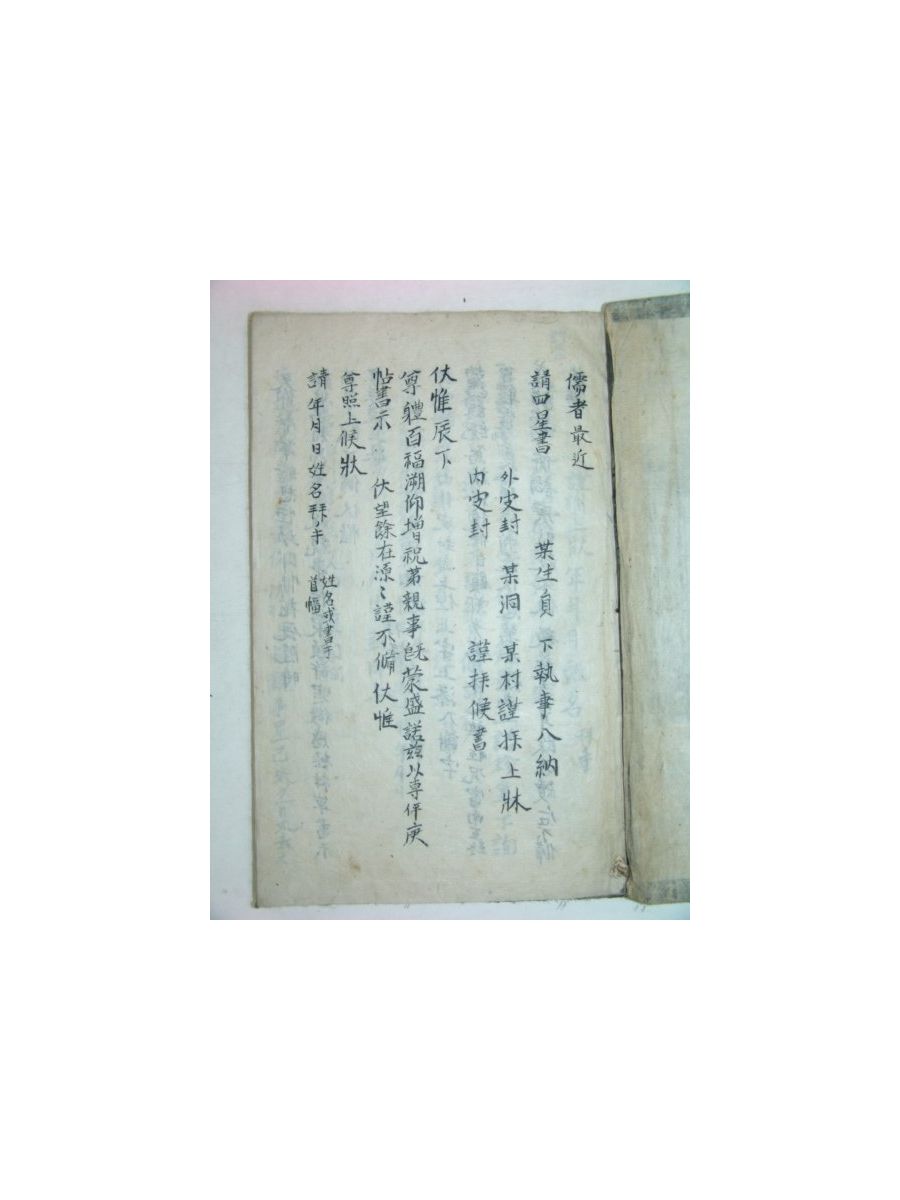 儒者最近
請四星書 某生員 下執事入納
外皮封 某洞 某村謹拜上狀
內皮封 謹拜候書
伏惟辰下
尊體百福溯仰增祝第親事旣蒙盛諾玆以專伻庚
帖書示 伏望餘在源〻謹不備伏惟
尊照上候狀
請 年月日姓名拜手
姓名或書于
首幅